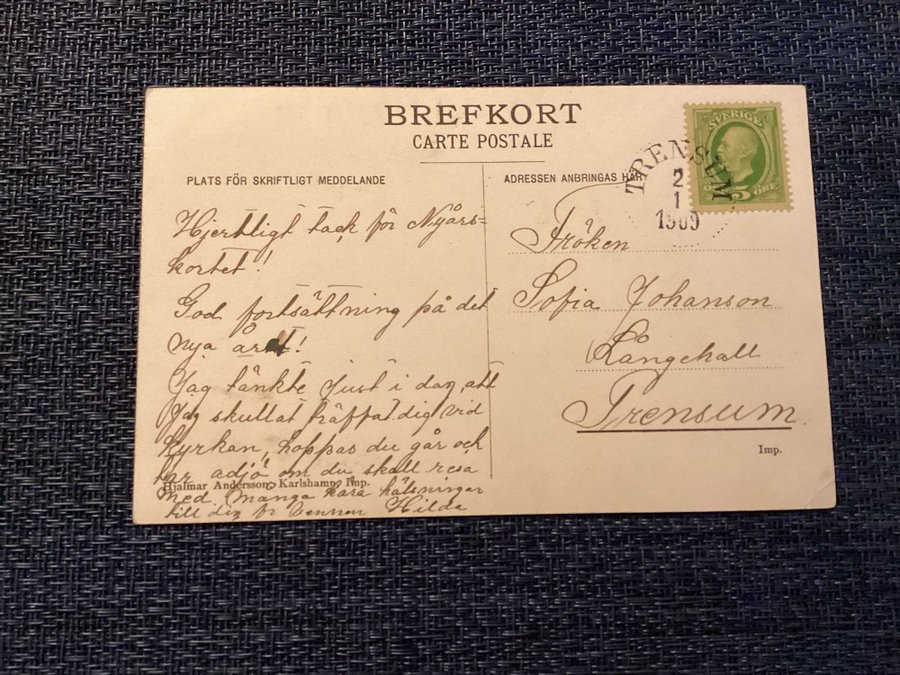 BREFKORT
CARTE POSTALE
PLATS FÖR SKRIFTLIGT MEDDELANDE
ADRESSEN ANBRINGAS HÄR
SVERIGE
5 ÖRE
TRENSUM
2
1
1909
Hjertligt tack för Nyårs=
kortet!
God fortsättning på det
nya året!
Jag tänkte just i dag att
jag skullat träffat dig vid
kyrkan, hoppas du går och
adjö om du skall resa
med många kära hälsningar
till dig fr vännen Hilda
Hjalmar Andersson, Karlshamn, Imp.
Fröken
Sofia Johanson
Långehall
Trensum
Imp.